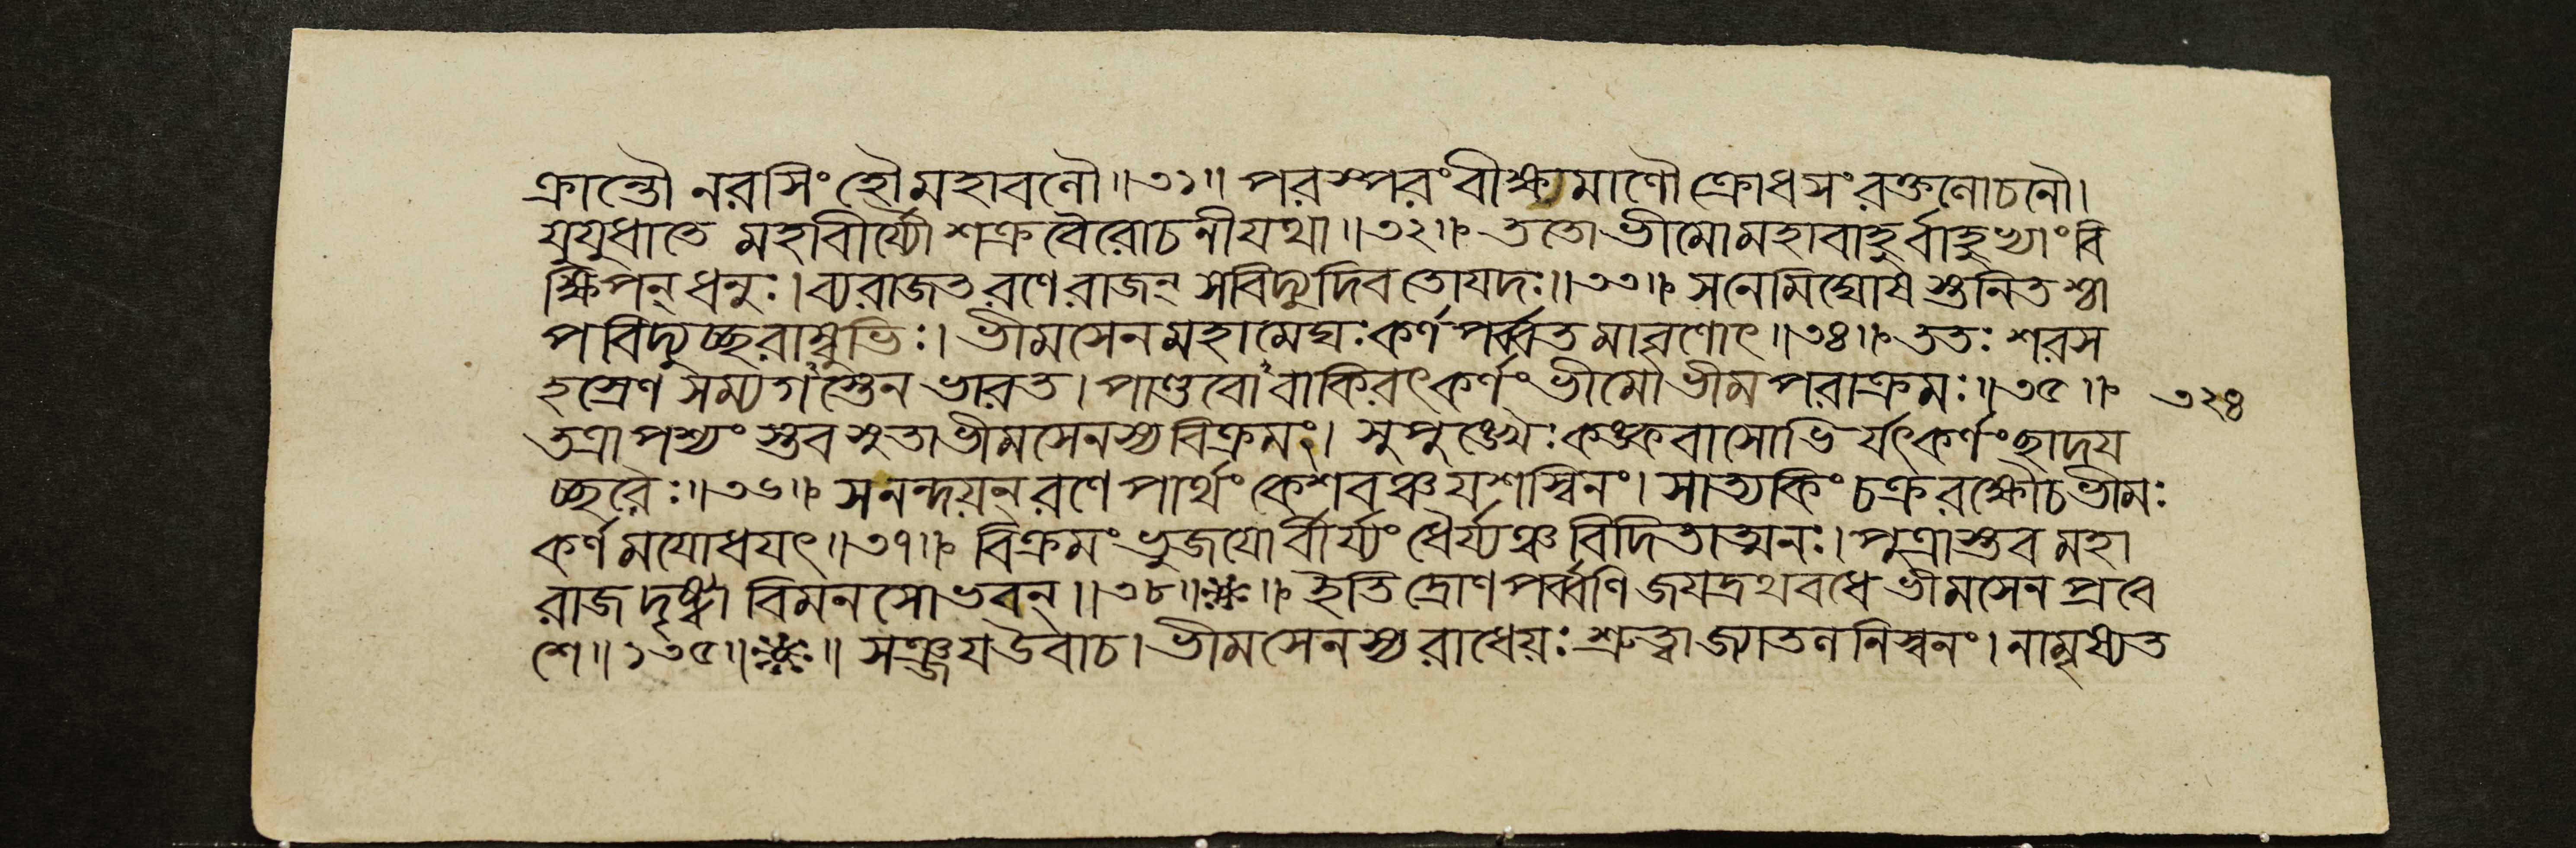 ক্রান্তৌ নরসিংহৌ মহাবলৌ॥৩১॥ পরস্পরং বীক্ষ্যমাণৌ ক্রোধসংরক্তলোচনৌ।
যুযুধাতে মহাবীর্য্যৌ শক্রবৈরোচনী যথা॥৩২॥ ততো ভীমো মহাবাহুর্বাহুভ্যাং বি
ক্ষিপন্ ধনুঃ। ব্যরাজত রণে রাজন্ সবিদ্যুদিব তোযদঃ॥৩৩॥ সনেমিঘোষস্তনিতশ্চা
পবিদ্যুচ্ছরাম্বুভিঃ। ভীমসেনমহামেঘঃ কর্ণপর্ব্বতমাবৃণোৎ॥৩৪॥ ততঃ শরস
হস্রেণ সম্যগস্তেন ভারত। পাণ্ডবোঽবাকিরৎ কর্ণং ভীমো ভীমপরাক্রমঃ॥৩৫॥
৩২৪
তত্রাপশ্যংস্তব সুতা ভীমসেনস্য বিক্রমং। সুপুঙ্খৈঃ কঙ্কবাসোভির্যৎ কর্ণং ছাদয
চ্ছরৈঃ॥৩৬॥ স নন্দয়ন্ রণে পার্থং কেশবঞ্চ যশস্বিনং। সাত্যকিং চক্ররক্ষৌ চ ভীমঃ
কর্ণমযোধযৎ॥৩৭॥ বিক্রমং ভুজযোর্বীর্য্যং ধৈর্য্যঞ্চ বিদিতাত্মনঃ। পুত্রাস্তব মহা
রাজ দৃষ্ট্বা বিমনসোভবন্॥৩৮॥ ইতি দ্রোণপর্ব্বণি জযদ্রথবধে ভীমসেনপ্রবে
শে॥১৩৫॥ সঞ্জয উবাচ। ভীমসেনস্য রাধেয়ঃ শ্রুত্বা জ্যাতলনিস্বনং। নামৃষ্যত